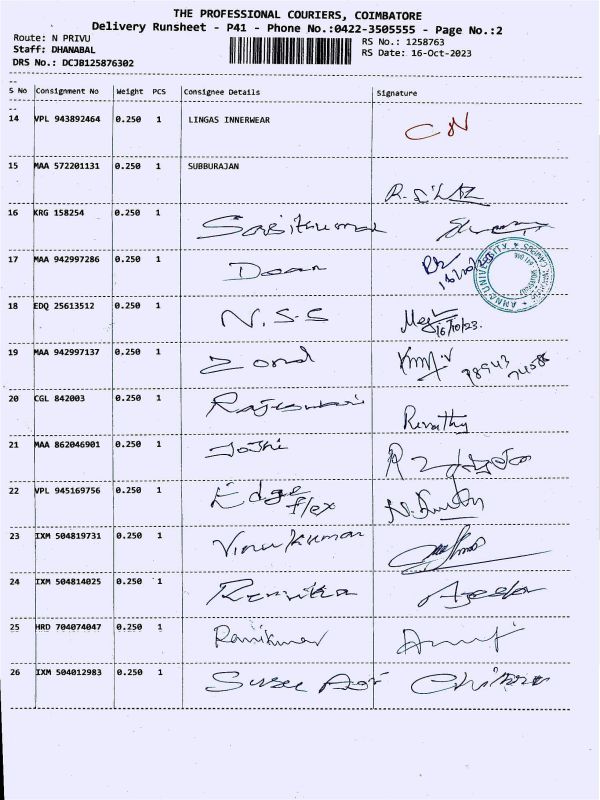 THE PROFESSIONAL COURIERS, COIMBATORE
Delivery Runsheet - P41 - Phone No.:0422-3505555 - Page No.:2
Route: N PRIVU RS No.: 1258763
Staff: DHANABAL RS Date: 16-Oct-2023
DRS No.: DCJB125876302
S No Consignment No Weight PCS Consignee Details Signature
14 VPL 943892464 0.250 1 LINGAS INNERWEAR CN
15 MAA 572201131 0.250 1 SUBBURAJAN
16 KRG 158254 0.250 1
17 MAA 942997286 0.250 1 Dean
18 EDQ 25613512 0.250 1 N.S.S 16/10/23.
19 MAA 942997137 0.250 1 Zond
20 CGL 842003 0.250 1 Rajeswari Revathy
21 MAA 862046901 0.250 1 Joshi
22 VPL 945169756 0.250 1 Edge flex
23 IXM 504819731 0.250 1 Vinu Kumar
24 IXM 504814025 0.250 1 Renuka
25 HRD 704074047 0.250 1
26 IXM 504012983 0.250 1